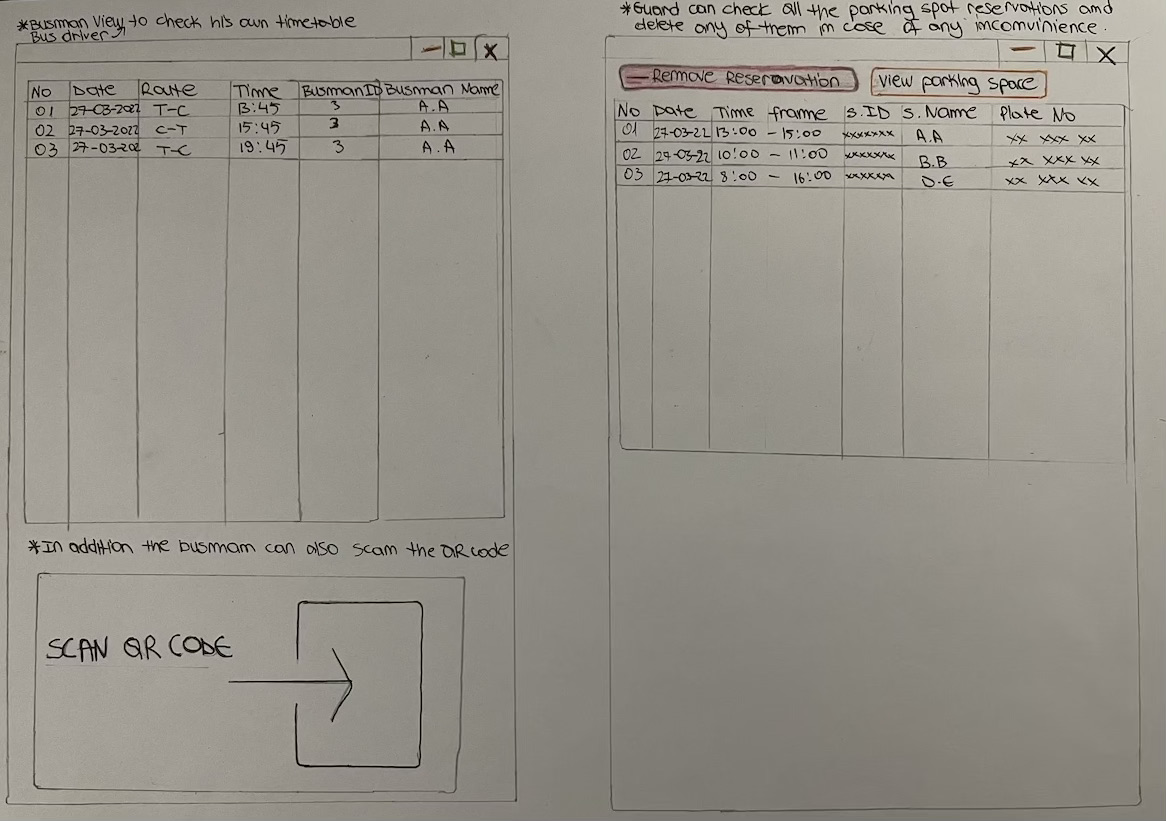 *Busman View to check his own timetable
Bus driver
No Date Route Time BusmanID Busman Name
01 27-03-2022 T-C 13:45 3 A.A
02 27-03-2022 C-T 15:45 3 A.A
03 27-03-202 T-C 19:45 3 A.A
*In addition the busman can also scan the QR code
SCAN QR CODE
*Guard can check all the parking spot reservations and
delete any of them in case of any inconvinience.
— Remove Reservation View parking space
No Date Time frame S.ID S. Name Plate No
01 27-03-22 13:00 - 15:00 xxxxxxx A.A xx xxx xx
02 27-03-22 10:00 - 11:00 xxxxxxx B.B xx xxx xx
03 27-03-22 8:00 - 16:00 xxxxxx D.E xx xxx xx